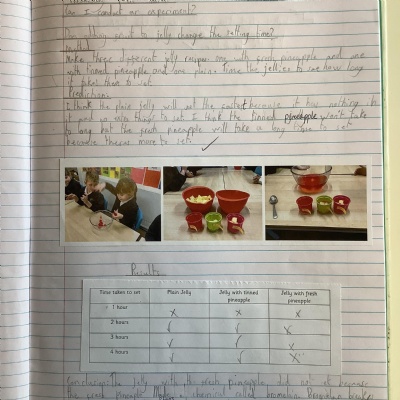 Can I conduct an experiment?
Do adding fruit to jelly change the setting time?
Method
Make three different jelly recipes one with fresh pineapple and one
with tinned pineapple and one plain. time the jellies to see how long
it takes them to set.
Prediction
I think the plain jelly will set the fastest because it has nothing in
it and no things to set. I think the tinned pineapple won't take
to long but the fresh pineapple will take a long time to set
because theres more to set.
Results
Time taken to set Plain Jelly Jelly with tinned pineapple Jelly with fresh pineapple
1 hour X X X
2 hours ✓ ✓ X
3 hours ✓ ✓ X
4 hours ✓ ✓ X
Conclusion: The jelly with the fresh pineapple did not set because
the fresh pineapple a chemical called bromelain. Bromelain